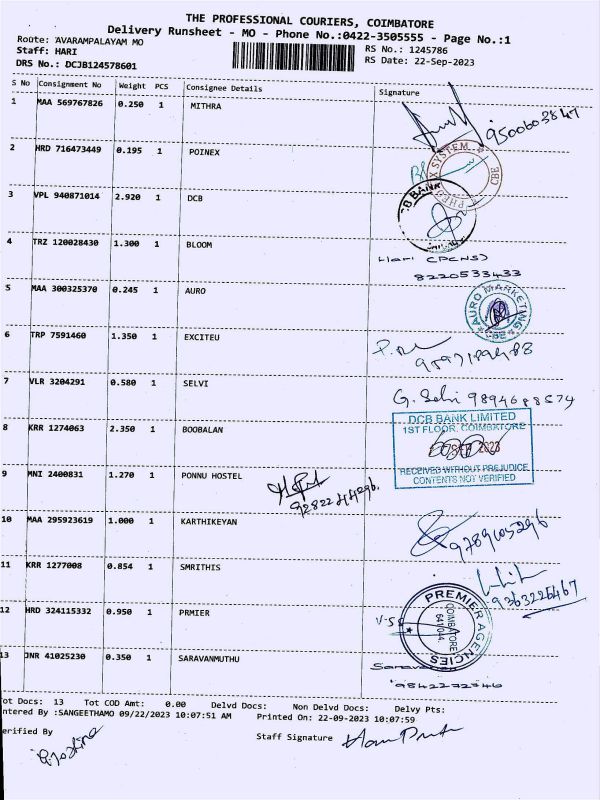 THE PROFESSIONAL COURIERS, COIMBATORE
Delivery Runsheet - MO - Phone No.:0422-3505555 - Page No.:1
Route: AVARAMPALAYAM MO
RS No.: 1245786
Staff: HARI
RS Date: 22-Sep-2023
DRS No.: DCJB124578601
S No Consignment No Weight PCS Consignee Details Signature
1 MAA 569767826 0.250 1 MITHRA
9500603847
2 HRD 716473449 0.195 1 POINEX
SYSTEM CBE
3 VPL 940871014 2.920 1 DCB
BANK
4 TRZ 120028430 1.300 1 BLOOM
Hari (PCNS)
8220533433
5 MAA 300325370 0.245 1 AURO
AURO MARKETING CBE
6 TRP 7591460 1.350 1 EXCITEU
7 VLR 3204291 0.580 1 SELVI
G. Selvi 9894688574
8 KRR 1274063 2.350 1 BOOBALAN
DCB BANK LIMITED
1ST FLOOR, COIMBATORE
2023
RECEIVED WITHOUT PREJUDICE
CONTENTS NOT VERIFIED
9 MNI 2400831 1.270 1 PONNU HOSTEL
9282244296.
10 MAA 295923619 1.000 1 KARTHIKEYAN
9789605296
11 KRR 1277008 0.854 1 SMRITHIS
9363226467
12 HRD 324115332 0.950 1 PRMIER
PREMIER AGENCIES
COIMBATORE
13 JNR 41025230 0.350 1 SARAVANMUTHU
9842272846
Tot Docs: 13 Tot COD Amt: 0.00 Delvd Docs: Non Delvd Docs: Delvy Pts:
ntered By :SANGEETHAMO 09/22/2023 10:07:51 AM Printed On: 22-09-2023 10:07:59
erified By
Staff Signature